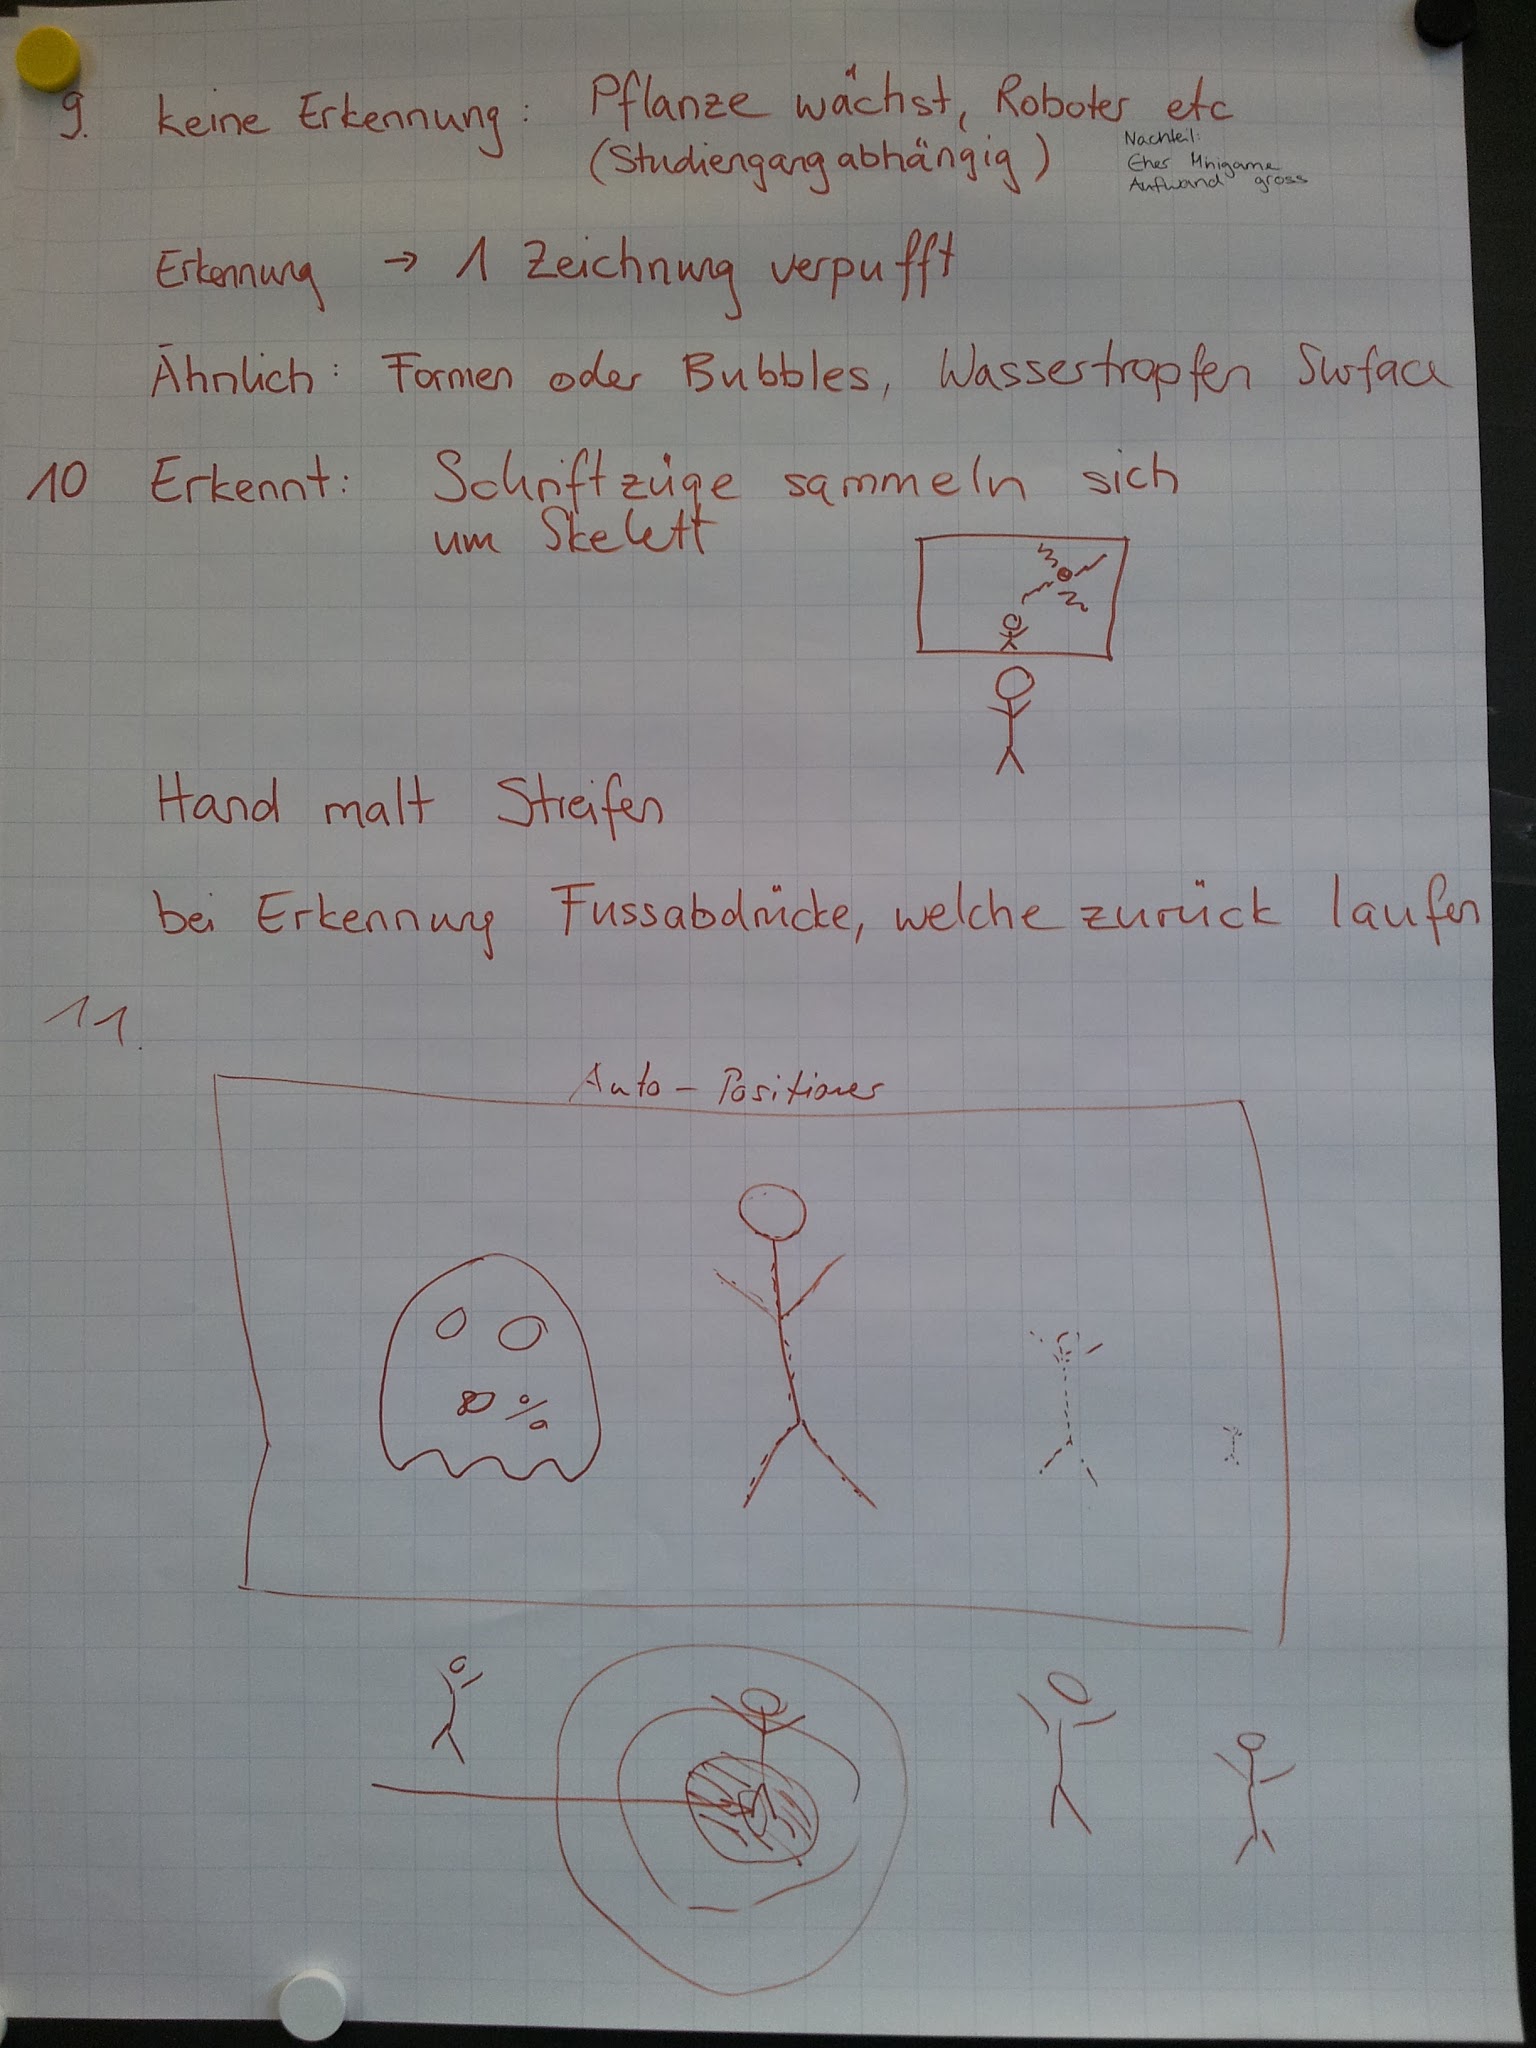 9. keine Erkennung: Pflanze wächst, Roboter etc
(Studiengangabhängig)
Nachteil:
Eher Minigame
Aufwand gross
Erkennung → 1 Zeichnung verpufft
Ähnlich: Formen oder Bubbles, Wassertropfen Surface
10 Erkennt: Schriftzüge sammeln sich
um Skelett
Hand malt Streifen
bei Erkennung Fussabdrücke, welche zurück laufen
11.
Auto-Positioner